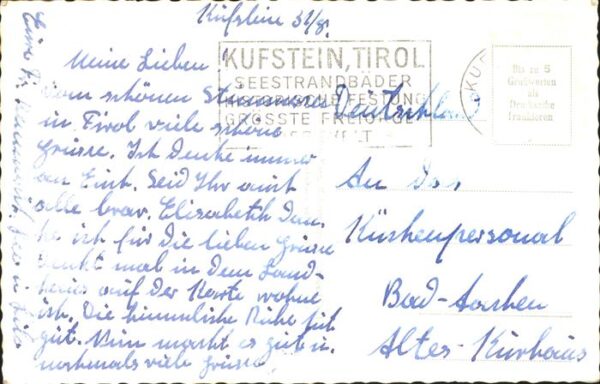 Kufstein 31/8.
Meine Lieben!
Vom schönen
in Tirol viele schöne
Grüsse. Ich denke immer
an Euch. Seid Ihr auch
alle brav. Elisabeth Dan-
ke ich für die lieben Grüsse
Denkt mal in dem Land-
haus auf der Karte wohne
ich. Die himmliche Ruhe tut
gut. Nun macht es gut u.
nochmals viele Grüsse
Eure
KUFSTEIN, TIROL
SEESTRANDBÄDER
HISTORISCHE FESTUNG
GRÖSSTE FREIORGEL
DER WELT
KUF
Bis zu 5
Grußworten
als
Drucksache
frankieren
Deutschland
An das
Küchenpersonal
Bad-Aachen
Altes-Kurhaus